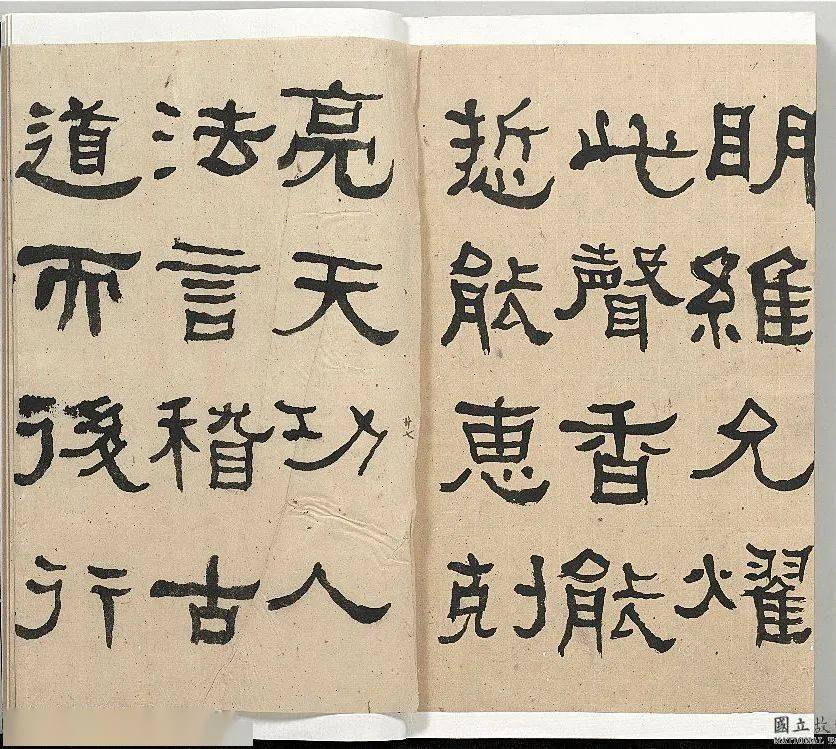 明維允燿
此聲香能
悊能惠克
廿七
亮天功人
法言稽古
道而後行
國立故
NATIONAL